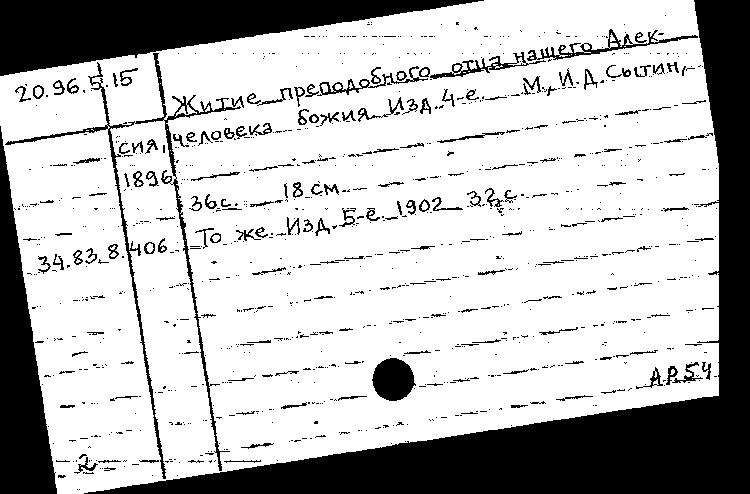 20.96.5.15
Житие преподобного отца нашего Алек-
сия, человека божия. Изд. 4-е. М., И.Д. Сытин,
1896.
36 с. 18 см.
34.83.8.406 То же. Изд. 5-е. 1902. 32 с.
АР.54
2